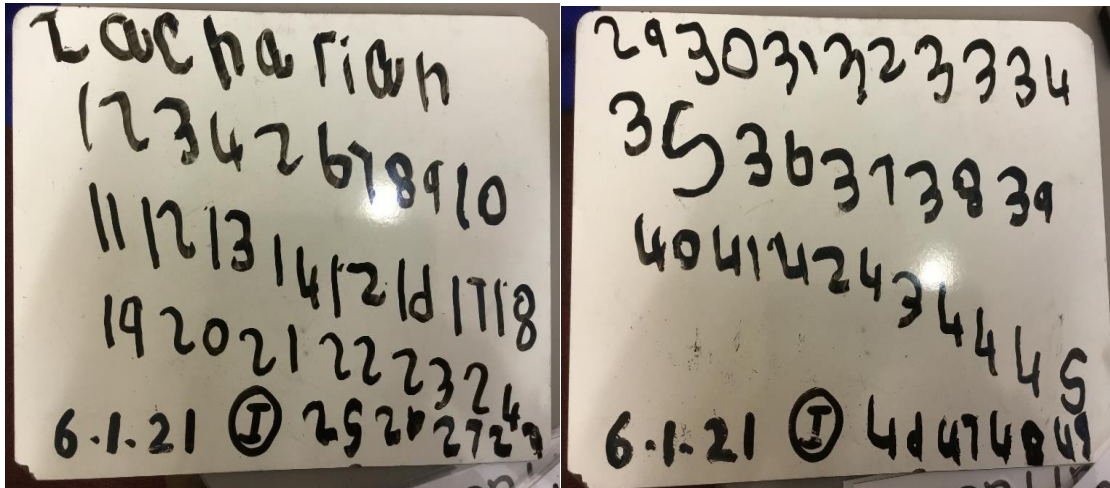 Zachariah
1 2 3 4 2 6 7 8 9 10
11 12 13 14 12 1d 17 18
19 20 21 22 23 24
6.1.21 I 25 26 27 28
29 30 31 32 33 34
35 36 37 38 39
40 41 42 43 44 45
6.1.21 I 4d 47 48 49